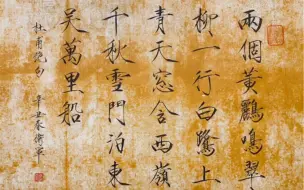 兩個黃鸝鳴翠
柳一行白鷺上
青天窗含西嶺
千秋雪門泊東
吳萬里船
杜甫絕句 辛丑春